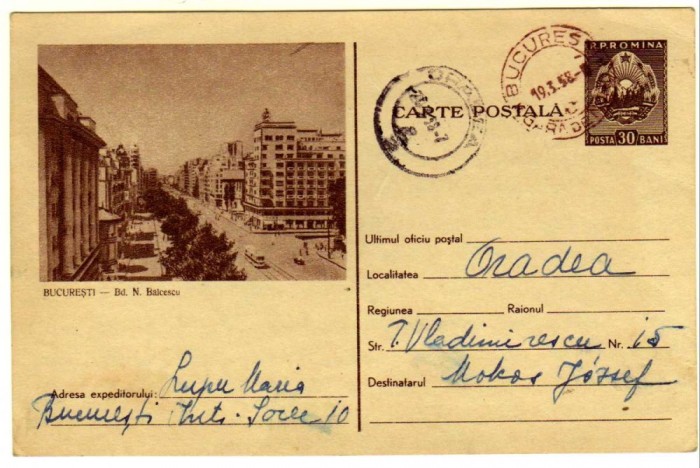 BUCUREȘTI — Bd. N. Balcescu
Adresa expeditorului: Lupu Maria
București
10
CARTE POSTALĂ
BUCUREȘTI
19.3.58
ORADEA
58
R.P.ROMINA
POSTA 30 BANI
Ultimul oficiu poștal
Localitatea Oradea
Regiunea Raionul
Str. T. Vladimirescu Nr. 15
Destinatarul Mokos József